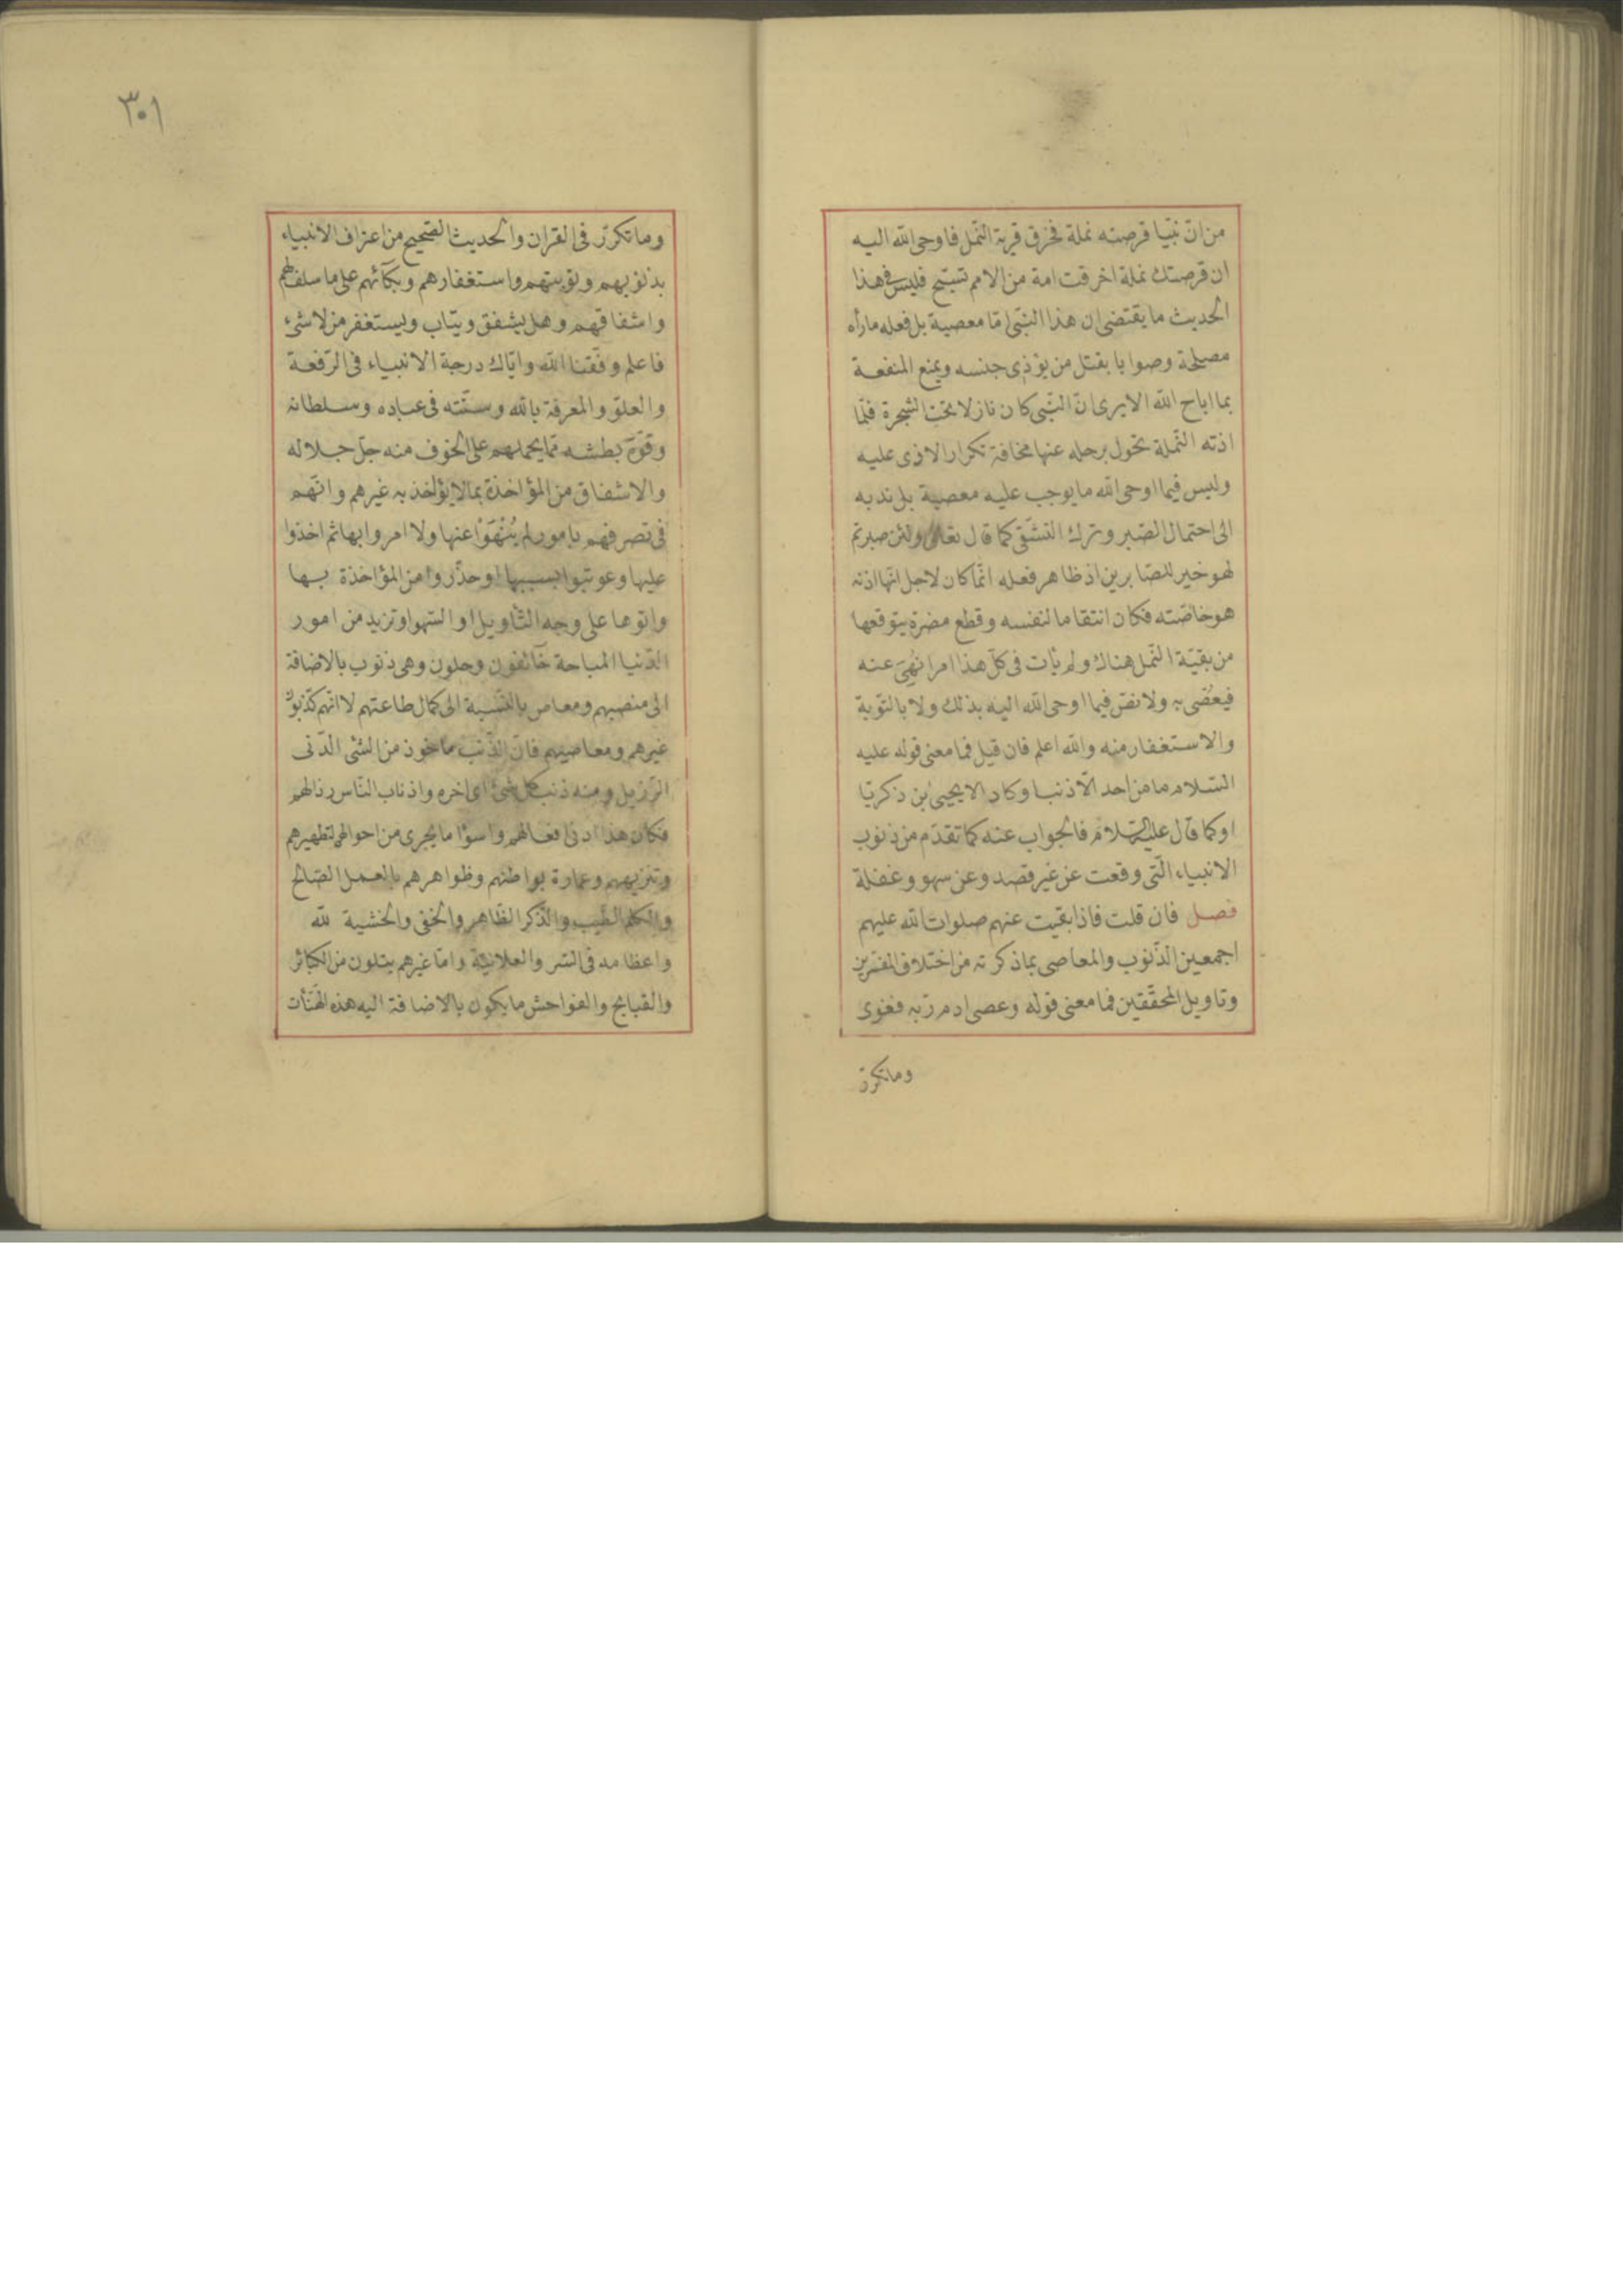 من انّ نبيّا قرصته نملة فخرق قرية النّمل فاوحى الله اليه
ان قرصتك نملة احرقت امة من الامم تسبّح فليس فى هذا
الحديث ما يقتضى ان هذا النبّى اتا معصية بل فعله ما رأه
مصلحة وصوابا بقتل من يؤذى جنسه ويمنع المنفعة
بما اباح الله الا يرى انّ النبّى كان نازلا تحت الشجرة فلمّا
اذته النّملة تحول برحله عنها مخافة تكرار الاذى عليه
وليس فيما اوحى الله ما يوجب عليه معصية بل ندبه
الى احتمال الصّبر وترك التشّفى كما قال تعالى ولئن صبرتم
لهو خير للصّابرين اذ ظاهر فعله انّما كان لاجل انّها اذته
هو خاصّته فكان انتقاما لنفسه وقطع مضرة يتوقعها
من بقيّة النّمل هناك ولم يأت فى كلّ هذا امرا نُهِىَ عنه
فيعُصّى به ولا نصّ فيما اوحى الله اليه بذلك ولا بالتّوبة
والاستغفار منه والله اعلم فان قيل فما معنى قوله عليه
السّلام ما من احد الّا ذنبا وكاد الا يحيىٰ بن زكريّا
او كما قال عليه السّلام فالجواب عنه كما تقدّم من ذنوب
الانبياء الّتى وقعت عن غير قصد وعن سهو وغفلة
فصل فان قلت فاذا بقيت عنهم صلوات الله عليهم
اجمعين الذّنوب والمعاصى بما ذكرته من اختلاف المفسّرين
وتاويل المحقّقين فما معنى قوله وعصى ادم ربّه فغوى
وما تكرّر
٣٠١
وما تكرّر فى القران والحديث الصّحيح من اعتراف الانبياء
بذنوبهم وتوبتهم واستغفارهم وبكآئهم على ما سلف لهم
واشفاقهم وهل يشفق ويتاب ويستغفر من لا شىء
فاعلم وفّقنا الله وايّاك درجة الانبياء فى الرّفعة
والعلوّ والمعرفة بالله وسنّته فى عباده وسلطانه
وقوّة بطشه ممّا يحملهم على الخوف منه جلّ جلاله
والاشفاق من المؤاخذة بما لا يؤاخذ به غيرهم وانّهم
فى تصرفهم بامور لم يُنْهَوْا عنها ولا امروا بها ثم اخذوا
عليها وعوتبوا بسببها او حذّروا من المؤاخذة بها
واتوها على وجه التّأويل او السّهو او تزيد من امور
الدّنيا المباحة خآئفون وجلون وهى ذنوب بالاضافة
الى منصبهم ومعاص بالنّسبة الى كمال طاعتهم لا انّهم كذنوب
غيرهم ومعاصيهم فانّ الذّنب ماخوذ من الشئ الدّنى
الرّزيل ومنه ذنب كل شئ اى اخره واذناب النّاس رذالهم
فكان هذا ادنى افعالهم واسوا ما يجرى من احوالهم لتطهيرهم
وتنزيههم وعمارة بواطنهم وظواهرهم بالعمل الصّالح
والكلم الطّيب والذّكر الظّاهر والخفى والخشية لله
واعظامه فى السّر والعلانيّة وامّا غيرهم يتلون من الكبائر
والقبايح والفواحش ما يكون بالاضافة اليه هذه الهَنَأت